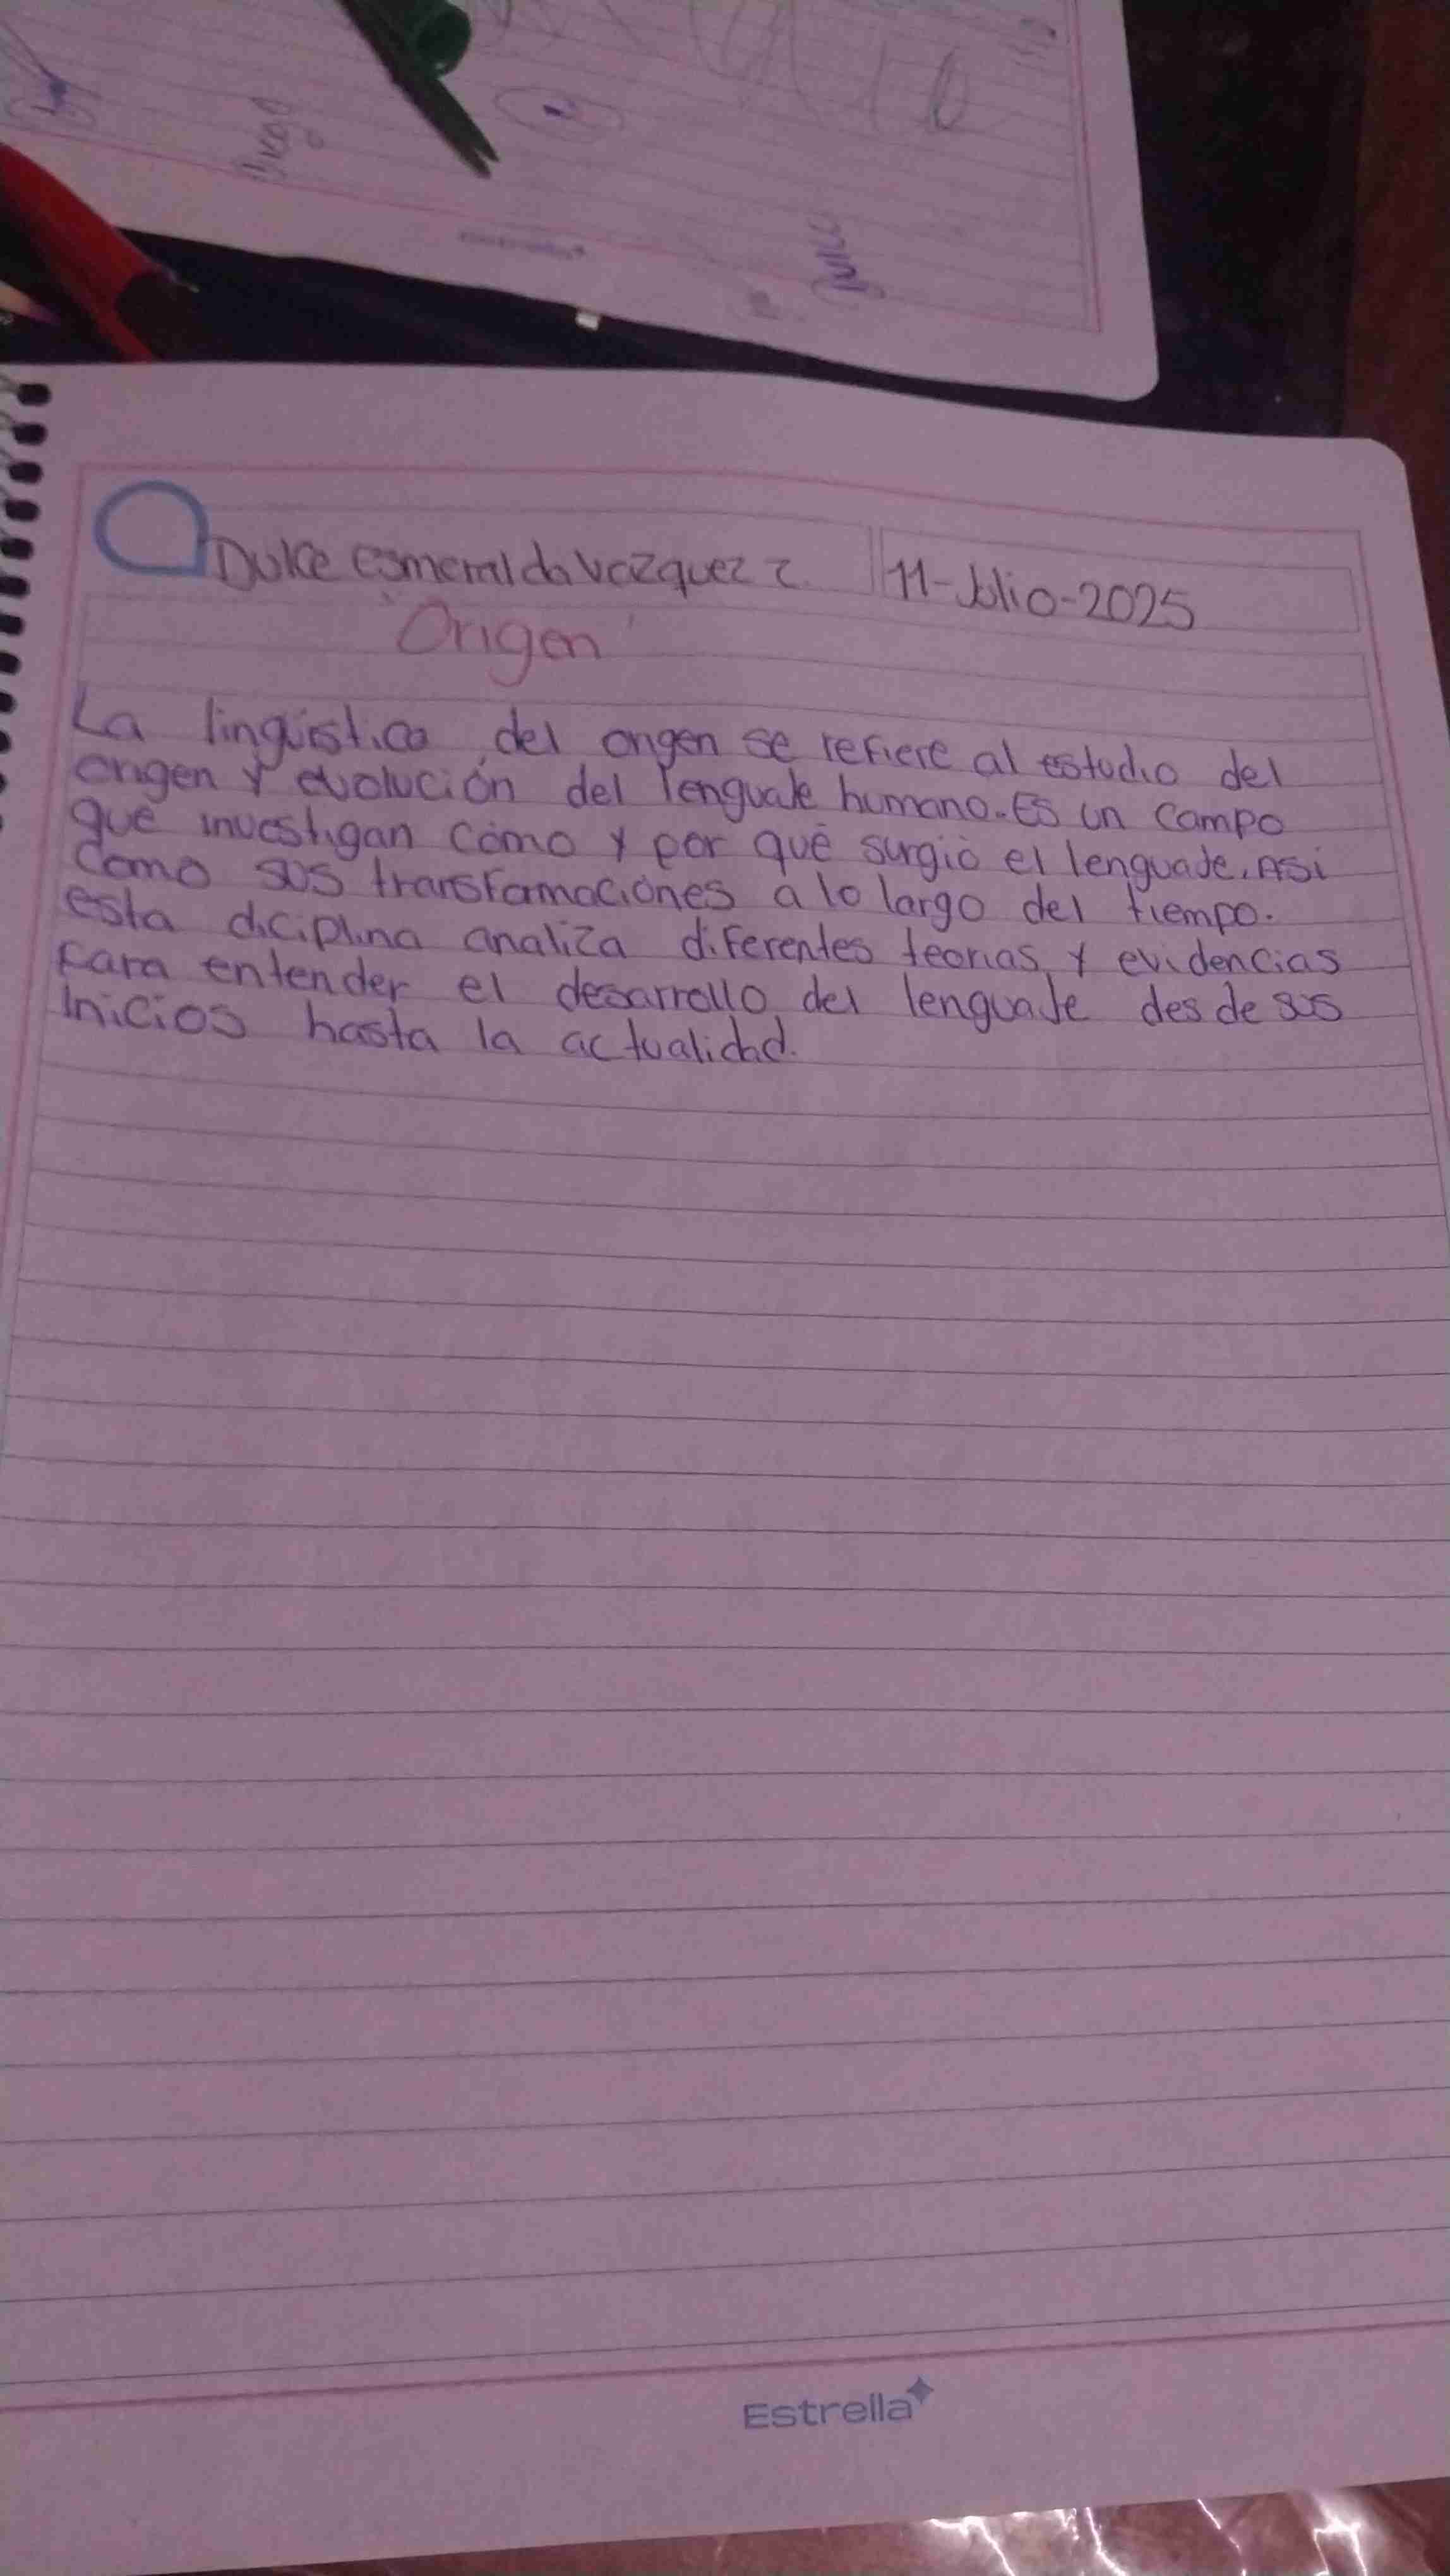 Dulce esmeralda Vazquez z. 11-Julio-2025
"Origen"
La lingüistica del origen se refiere al estudio del
origen y evolución del lenguaje humano. Es un campo
que investigan cómo y por qué surgió el lenguaje. Asi
como sus transformaciones a lo largo del tiempo.
esta diciplina analiza diferentes teorias y evidencias
Para entender el desarrollo del lenguaje desde sus
Inicios hasta la actualidad.
Estrella